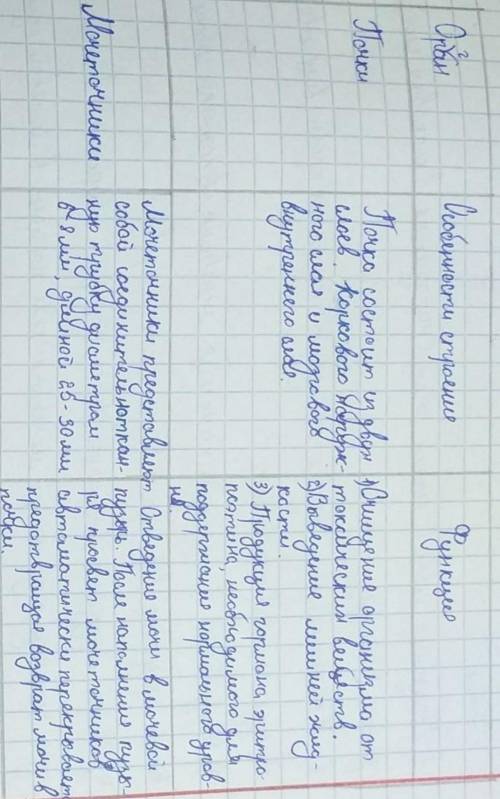 Орган
Особенности строение
Функцие
Почки
Почка состоит из двух
слоев. Коркового наруж-
ного слоя и мозгового
внутреннего слоя.
1) Очищение организма от
токсических веществ.
2) Выведение лишней жид-
кости.
3) Продукция гормона эритро-
поэтина, необходимого для
поддержания нормального уров-
ня
Мочеточники
Мочеточники представляют
собой соединительноткан-
ную трубку диаметром
6-8 мм, длиной 25-30 мм
Отведение мочи в мочевой
пузырь. После наполнения пузы-
ря просвет мочеточников
автоматически перекрывает
предотвращая возврат мочи в
почки.